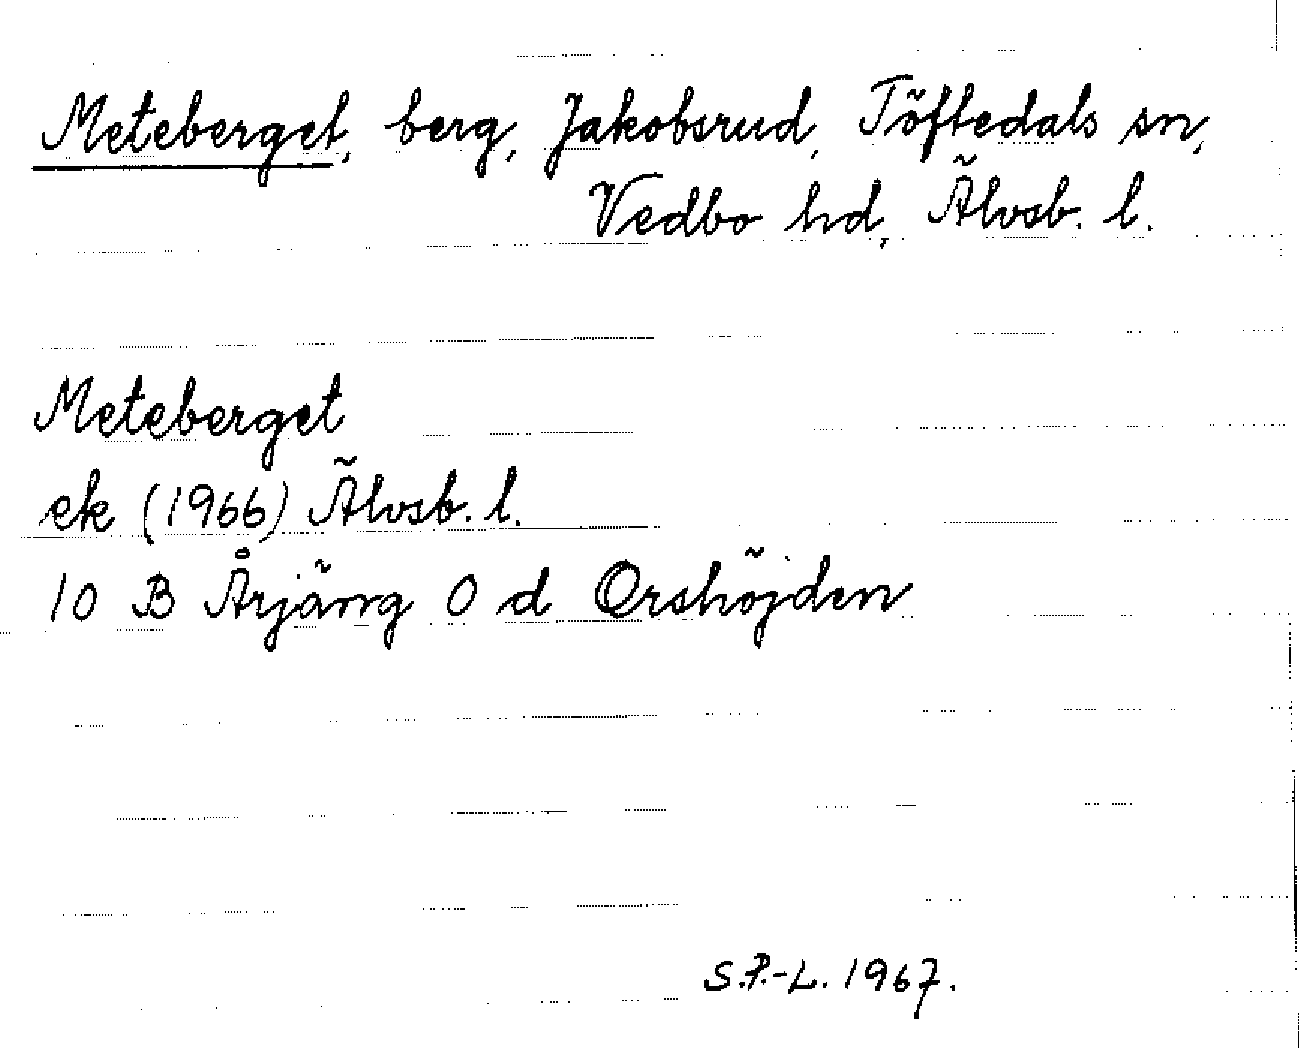 Meteberget, berg, Jakobsrud, Töftedals sn,
Vedbo hd, Älvsb. l.
Meteberget
ek (1966) Älvsb. l.
10 B Årjäng 0 d Orshöjden
S.P.-L. 1967.